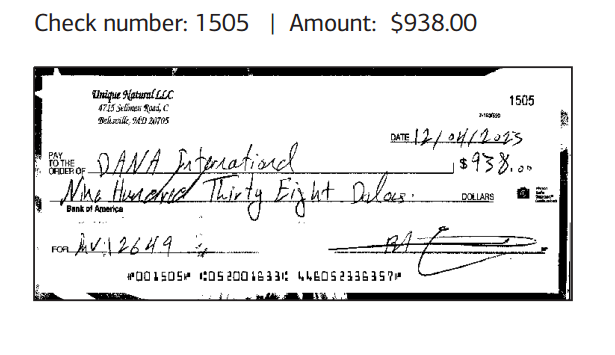 Check number: 1505 | Amount: $938.00
Unique Natural LLC
4715 Sellman Road, C
Beltsville, MD 20705
1505
DATE 12/04/2023
PAY TO THE ORDER OF DANA International $938.00
Nine Hundred Thirty Eight Dolars. DOLLARS
Bank of America
FOR INV:12649
⑈001505⑈ ⑆052001633⑆ 446052336357⑈